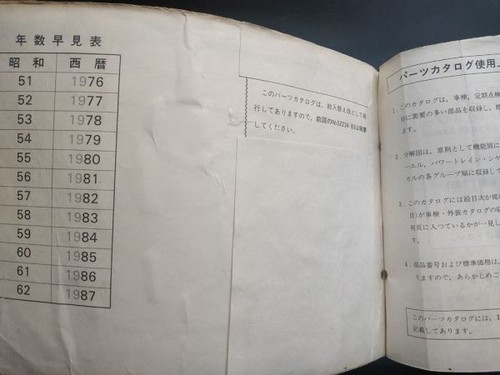 年数早見表
昭和 西暦
51 1976
52 1977
53 1978
54 1979
55 1980
56 1981
57 1982
58 1983
59 1984
60 1985
61 1986
62 1987
このパーツカタログは、総入替え版として発
行してありますので、前回の
してください。
パーツカタログ使用上
1. このカタログは、車検、定期点検
に需要の多い部品を収録し、
ます。
2. 分解図は、原則として機能別に
ーエル、パワートレイン・シャ
カルの各グループ順に収録して
3. このカタログには絵目次が
目)が車検・外装カタログの
何頁に入っているかが一見し
す。
4. 部品番号および標準価格は、
ますので、あらかじめご
このパーツカタログには、1
記載してあります。